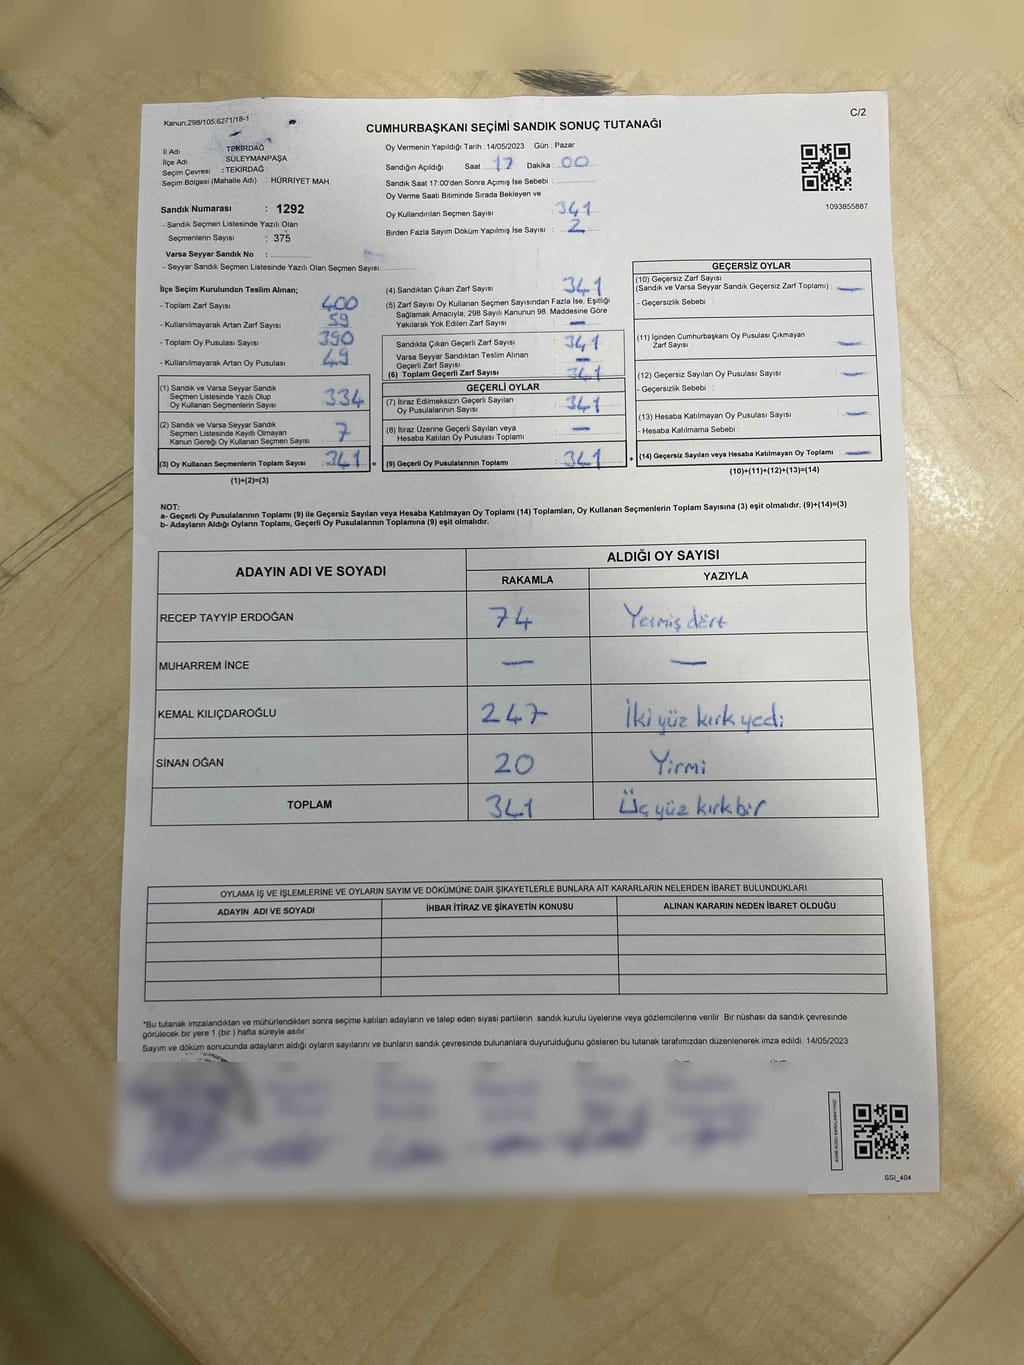 Kanun;298/105,6271/18-1
C/2
CUMHURBAŞKANI SEÇİMİ SANDIK SONUÇ TUTANAĞI
İl Adı : TEKİRDAĞ
İlçe Adı : SÜLEYMANPAŞA
Seçim Çevresi : TEKİRDAĞ
Seçim Bölgesi (Mahalle Adı) : HÜRRİYET MAH.
Sandık Numarası : 1292
- Sandık Seçmen Listesinde Yazılı Olan
Seçmenlerin Sayısı : 375
Varsa Seyyar Sandık No :
- Seyyar Sandık Seçmen Listesinde Yazılı Olan Seçmen Sayısı:
Oy Vermenin Yapıldığı Tarih : 14/05/2023 Gün : Pazar
Sandığın Açıldığı Saat : 17 Dakika : 00
Sandık Saat 17:00'den Sonra Açımış İse Sebebi :
Oy Verme Saati Bitiminde Sırada Bekleyen ve
Oy Kullandırılan Seçmen Sayısı : 341
Birden Fazla Sayım Döküm Yapılmış İse Sayısı : 2
1093855887
İlçe Seçim Kurulundan Teslim Alınan;
- Toplam Zarf Sayısı : 400
- Kullanılmayarak Artan Zarf Sayısı : 59
- Toplam Oy Pusulası Sayısı : 390
- Kullanılmayarak Artan Oy Pusulası : 49
(1) Sandık ve Varsa Seyyar Sandık
Seçmen Listesinde Yazılı Olup
Oy Kullanan Seçmenlerin Sayısı : 334
(2) Sandık ve Varsa Seyyar Sandık
Seçmen Listesinde Kayıtlı Olmayan
Kanun Gereği Oy Kullanan Seçmen Sayısı : 7
(3) Oy Kullanan Seçmenlerin Toplam Sayısı : 341 =
(1)+(2)=(3)
(4) Sandıktan Çıkan Zarf Sayısı : 341
(5) Zarf Sayısı Oy Kullanan Seçmen Sayısından Fazla İse, Eşitliği
Sağlamak Amacıyla; 298 Sayılı Kanunun 98. Maddesine Göre
Yakılarak Yok Edilen Zarf Sayısı : —
Sandıkta Çıkan Geçerli Zarf Sayısı : 341
Varsa Seyyar Sandıktan Teslim Alınan
Geçerli Zarf Sayısı : —
(6) Toplam Geçerli Zarf Sayısı : 341
GEÇERLİ OYLAR
(7) İtiraz Edilmeksizin Geçerli Sayılan
Oy Pusulalarının Sayısı : 341
(8) İtiraz Üzerine Geçerli Sayılan veya
Hesaba Katılan Oy Pusulası Toplamı : —
(9) Geçerli Oy Pusulalarının Toplamı : 341 +
GEÇERSİZ OYLAR
(10) Geçersiz Zarf Sayısı
(Sandık ve Varsa Seyyar Sandık Geçersiz Zarf Toplamı) : —
- Geçersizlik Sebebi :
(11) İçinden Cumhurbaşkanı Oy Pusulası Çıkmayan
Zarf Sayısı : —
(12) Geçersiz Sayılan Oy Pusulası Sayısı : —
- Geçersizlik Sebebi :
(13) Hesaba Katılmayan Oy Pusulası Sayısı : —
- Hesaba Katılmama Sebebi :
(14) Geçersiz Sayılan veya Hesaba Katılmayan Oy Toplamı : —
(10)+(11)+(12)+(13)=(14)
NOT:
a- Geçerli Oy Pusulalarının Toplamı (9) ile Geçersiz Sayılan veya Hesaba Katılmayan Oy Toplamı (14) Toplamları, Oy Kullanan Seçmenlerin Toplam Sayısına (3) eşit olmalıdır. (9)+(14)=(3)
b- Adayların Aldığı Oyların Toplamı, Geçerli Oy Pusulalarının Toplamına (9) eşit olmalıdır.
ADAYIN ADI VE SOYADI
ALDIĞI OY SAYISI
RAKAMLA YAZIYLA
RECEP TAYYİP ERDOĞAN 74 Yetmiş dört
MUHARREM İNCE — —
KEMAL KILIÇDAROĞLU 247 İki yüz kırk yedi
SİNAN OĞAN 20 Yirmi
TOPLAM 341 Üç yüz kırk bir
OYLAMA İŞ VE İŞLEMLERİNE VE OYLARIN SAYIM VE DÖKÜMÜNE DAİR ŞİKAYETLERLE BUNLARA AİT KARARLARIN NELERDEN İBARET BULUNDUKLARI
ADAYIN ADI VE SOYADI İHBAR İTİRAZ VE ŞİKAYETİN KONUSU ALINAN KARARIN NEDEN İBARET OLDUĞU
*Bu tutanak imzalandıktan ve mühürlendikten sonra seçime katılan adayların ve talep eden siyasi partilerin sandık kurulu üyelerine veya gözlemcilerine verilir .Bir nüshası da sandık çevresinde
görülecek bir yere 1 (bir ) hafta süreyle asılır.
Sayım ve döküm sonucunda adayların aldığı oyların sayılarını ve bunların sandık çevresinde bulunanlara duyurulduğunu gösteren bu tutanak tarafımızdan düzenlenerek imza edildi. 14/05/2023
SSI_404